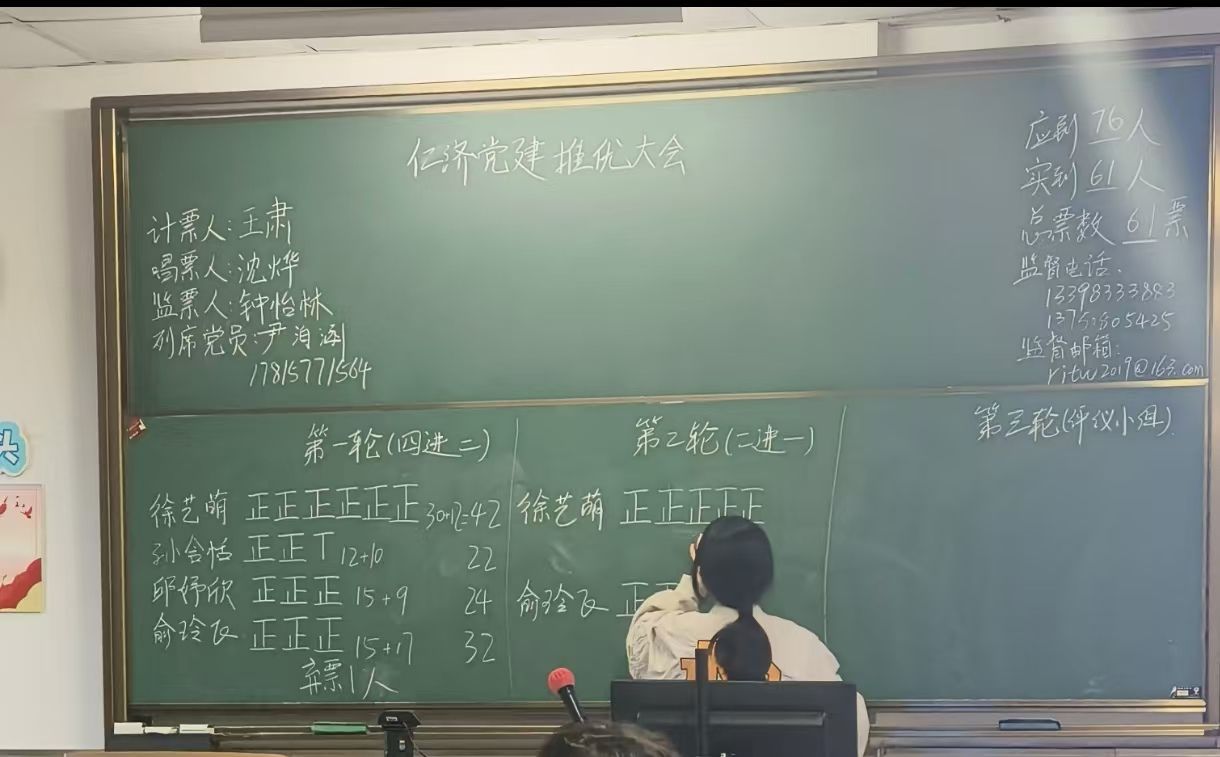 仁济党建推优大会
计票人:王肃
唱票人:沈烨
监票人:钟怡林
列席党员:尹泊涵
17815771564
应到 76 人
实到 61 人
总票数 61 票
监督电话:
13398333883
监督邮箱:
ritw2019@163.com
第一轮(四进二)
徐艺萌 正正正正正正 30+12=42
孙含恬 正正丅 12+10 22
邱妤欣 正正正 15+9 24
俞玲 正正正 15+17 32
弃票1人
第二轮(二进一)
徐艺萌 正正正正正
俞玲 正
第三轮(评议小组)